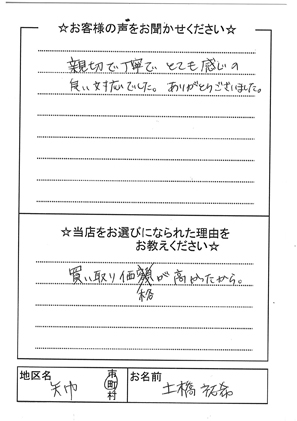 ☆お客様の声をお聞かせください☆
親切で丁寧で とても感じの
良い対応でした。ありがとうございました。
☆当店をお選びになられた理由を
お教えください☆
買い取り価格が高かったから。
地区名
矢巾
市町村
お名前
土橋